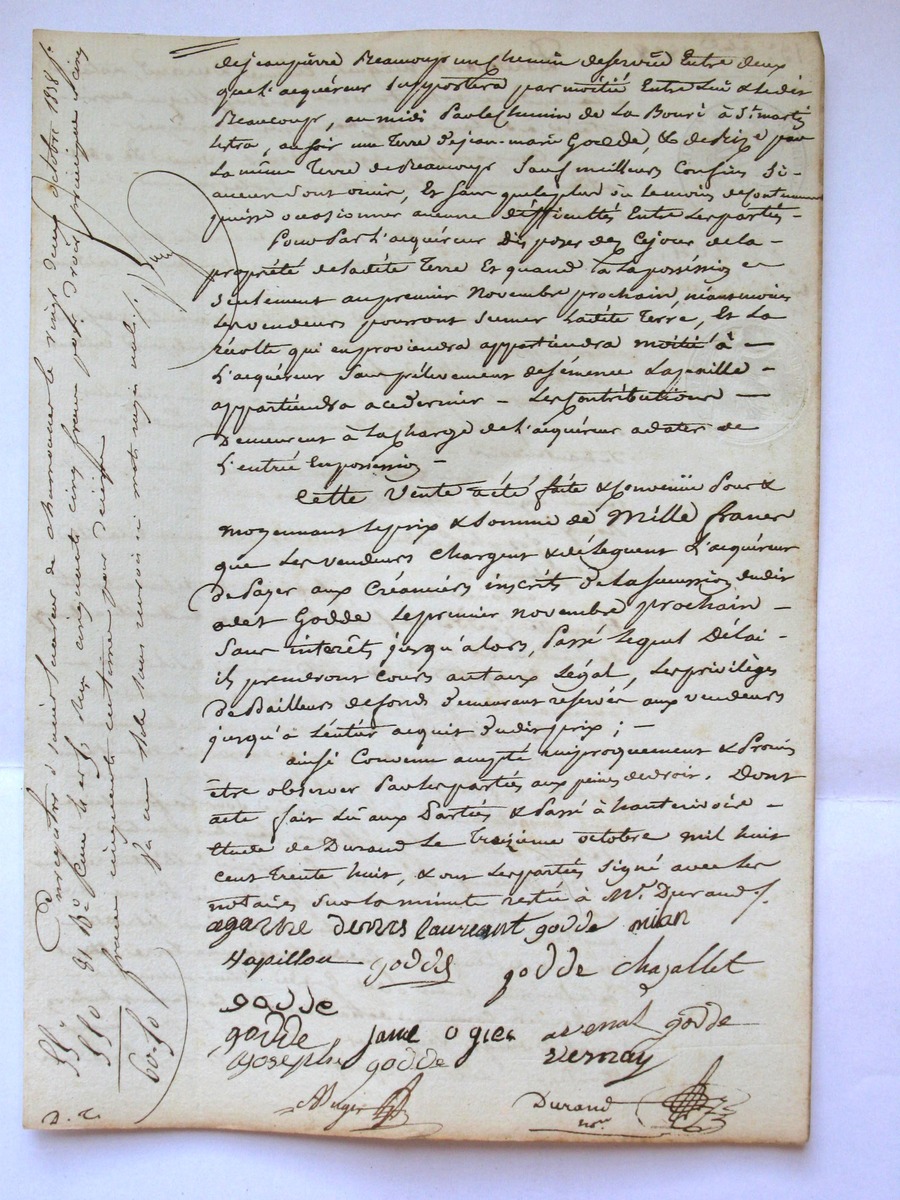 de jean pierre Beaucoup un Chemin de servit Entre deux
que l'acquéreur supportera par moitié Entre Lui & Ledit
Beaucoup, au midi Par le Chemin de La Bouri à St marti
Letra, au soir une Terre de jean-marie Godde, & de Bize par
La même Terre de Beaucoup Sauf meilleurs Confins Si
aucun sont omis, Et sans que le plus ou le moins de Contenue
puisse occasionner aucune difficultés Entre Les parties -
Pour Par L'acquéreur Disposer dez Cejour de la -
propriété de ladite Terre Et quand à La possession
Seulement au premier Novembre prochain, néantmoins
Les vendeurs pourront semer Ladite Terre, Et La
récolte qui en proviendra appartiendra moitié à -
L'acquéreur Sans prélevement de semence La paille -
appartiendra a ce dernier - Les Contributions -
Demeurent à La Charge de L'acquéreur a dater de
L'entrée En possession -
Cette Vente a été faite & Convenüe Pour &
moyennant Le prix & Somme de Mille francs
que Les vendeurs Chargent & délèguent L'acquéreur
De Payer aux Créanciers inscrits de la succession dudit
Godde Le premier novembre prochain -
Sans intérêts jusqu'à alors, Passé Lequel Délai -
ils prendront Cours au taux Légal, Les privilèges
De Bailleurs de fond demeurant reservés aux vendeurs
jusqu'à L'entier acquit dudit prix ; -
ainsi Convenu accepté réciproquement & Promis
être observé Par Les parties aux peines de droit. Dont
acte fait Lû aux Parties & Passé à hauterivoire -
Etude de Durand Le Treizieme octobre mil huit
cent Trente huit, & ont Les parties Signé avec Les
notaires Sur La minute restée à Me Durand
agathe denis laureant godde mian
Papillon godde godde chazallet
godde
godde jame ogier arenal godde
joseph godde vernay
Auger Durand
nre
Enregistré à Saint Laurent de chamousset le vingt deux Octobre 1838 f.
91 Ro Case 1 et s. Reçu cinquante cinq francs pour droit principal cinq
francs cinquante centimes pour décime
sa un seul renvoi mots rayés nuls
55 "
5 50
60.50
D. C.